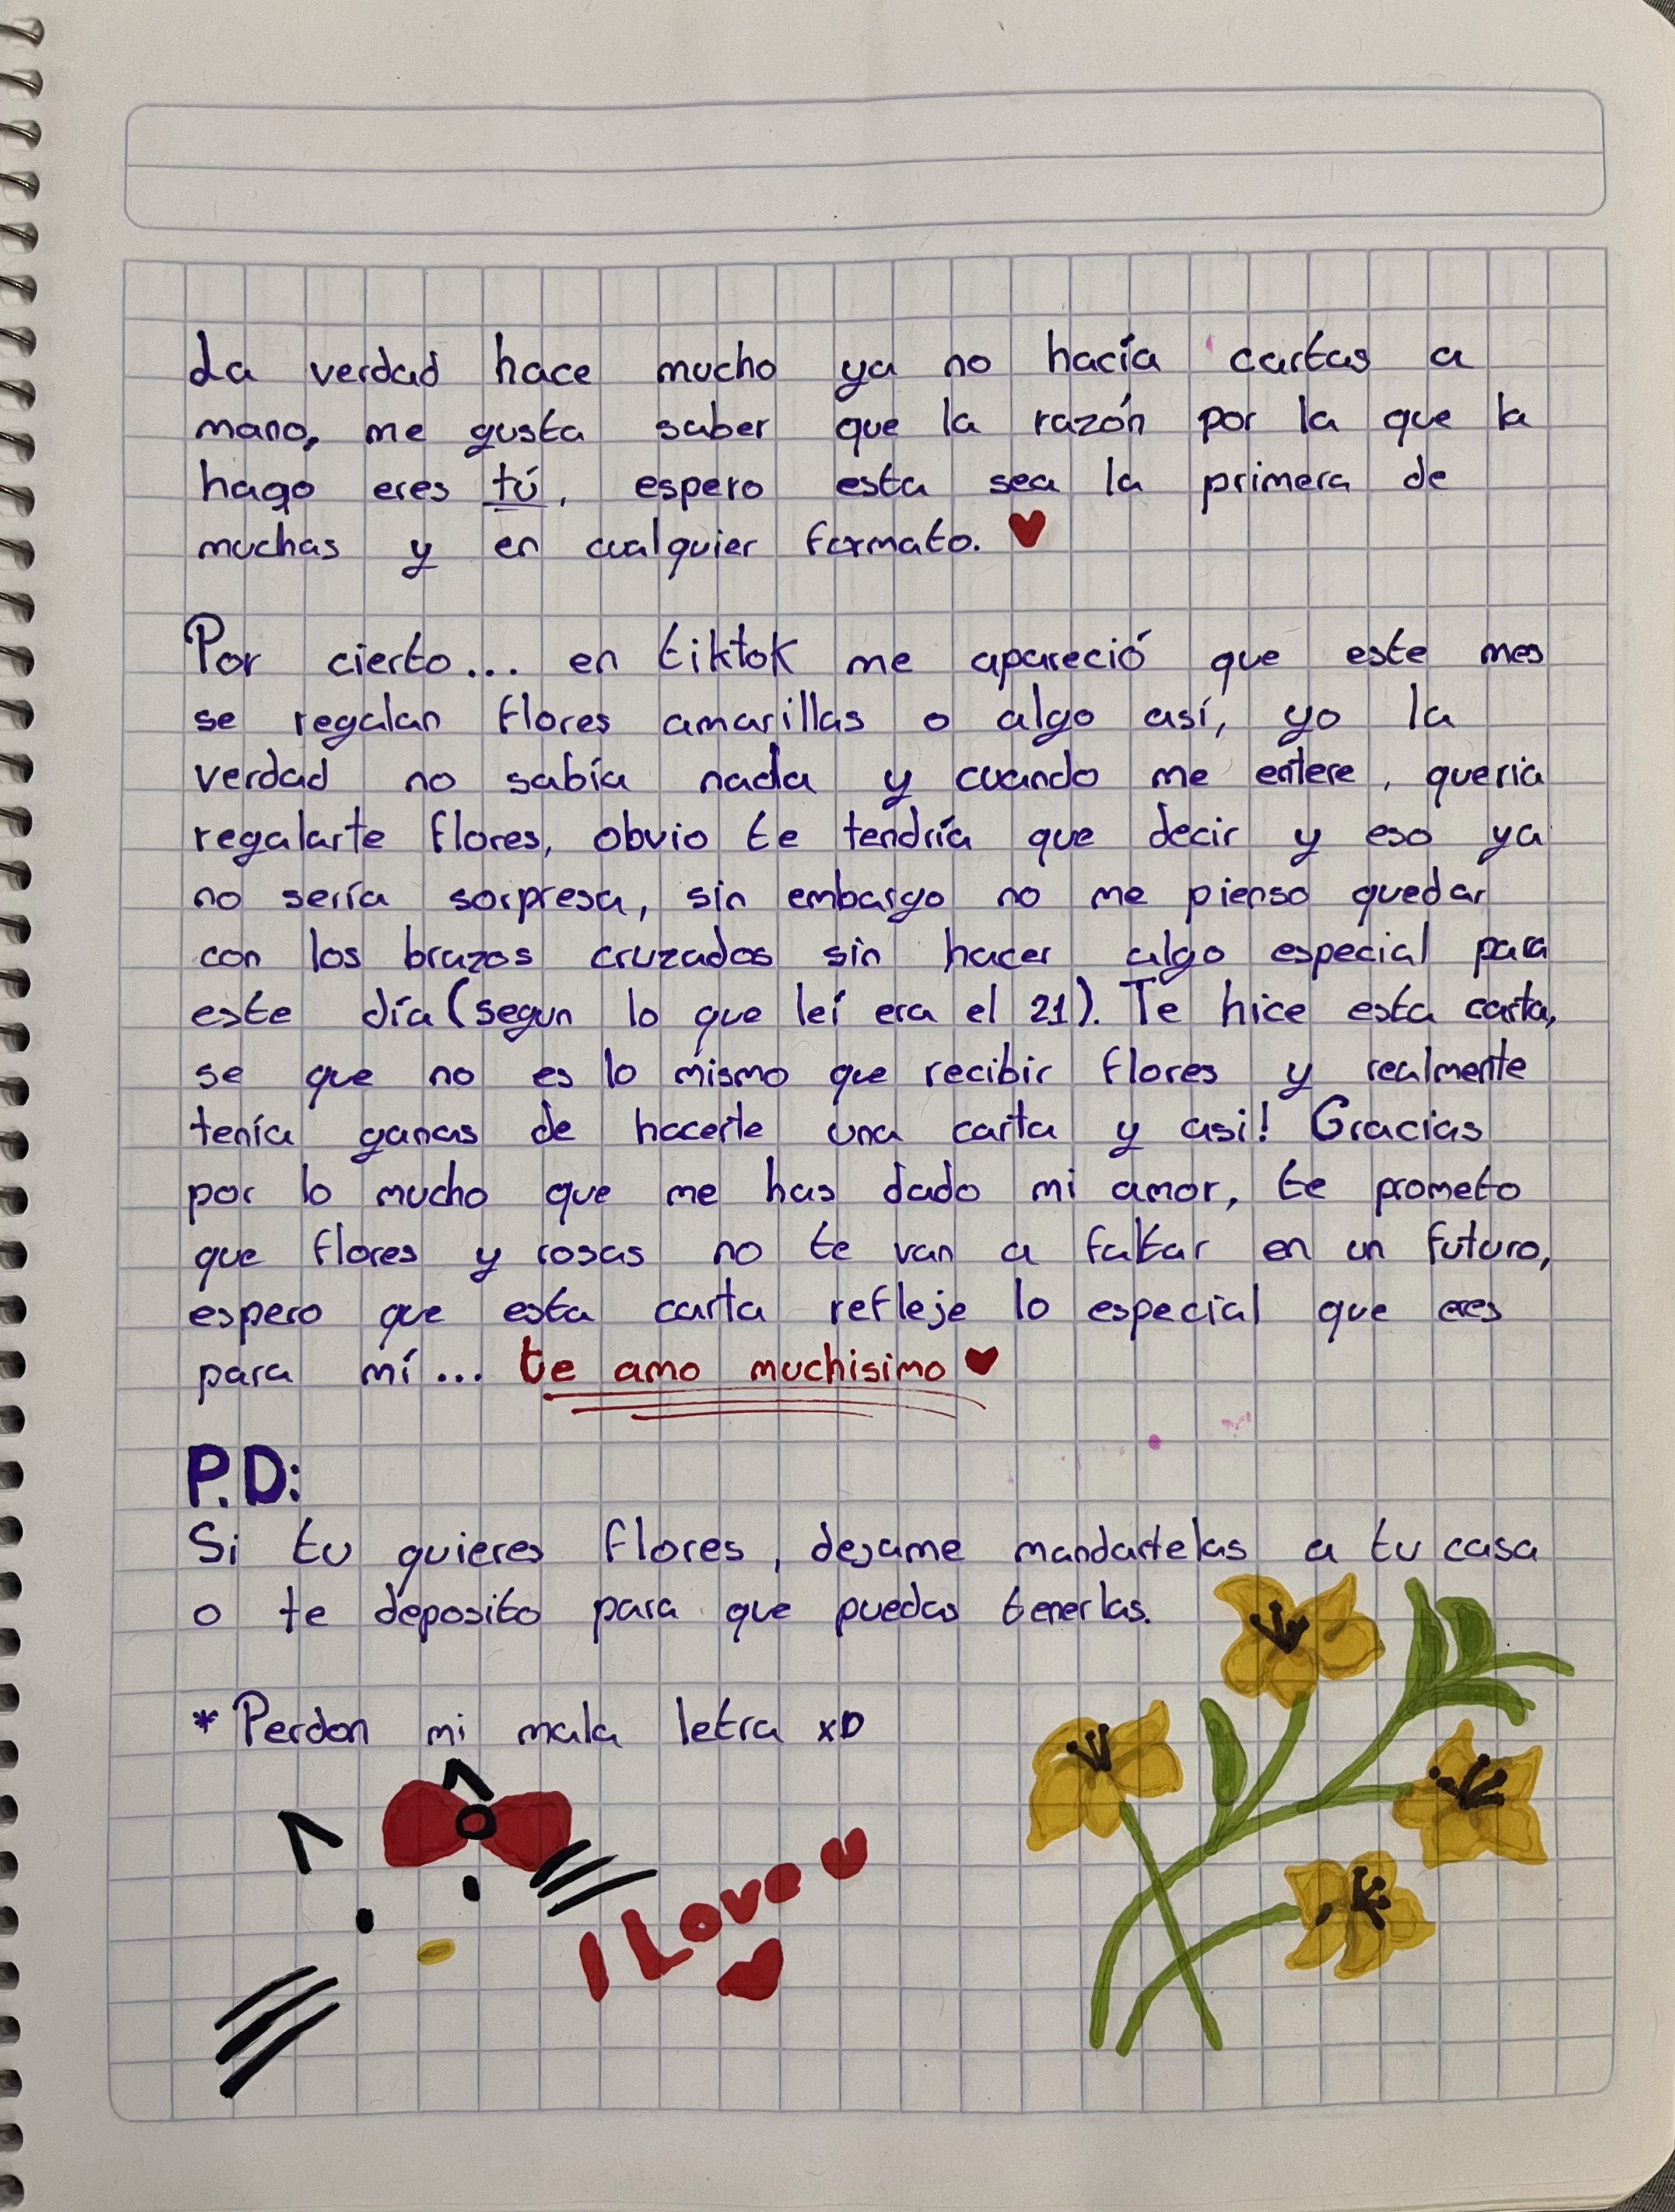 La verdad hace mucho ya no hacía cartas a
mano, me gusta saber que la razón por la que la
hago eres tú, espero esta sea la primera de
muchas y en cualquier formato. ♥
Por cierto... en tiktok me apareció que este mes
se regalan flores amarillas o algo así, yo la
verdad no sabía nada y cuando me entere, queria
regalarte flores, obvio te tendría que decir y eso ya
no sería sorpresa, sin embargo no me pienso quedar
con los brazos cruzados sin hacer algo especial para
este día (segun lo que leí era el 21). Te hice esta carta,
se que no es lo mismo que recibir flores y realmente
tenía ganas de hacerte una carta y asi! Gracias
por lo mucho que me has dado mi amor, te prometo
que flores y rosas no te van a faltar en un futuro,
espero que esta carta refleje lo especial que eres
para mí... te amo muchisimo ♥
P.D:
Si tu quieres flores, dejame mandartelas a tu casa
o te deposito para que puedas tenerlas.
* Perdon mi mala letra xD
I Love U
♥